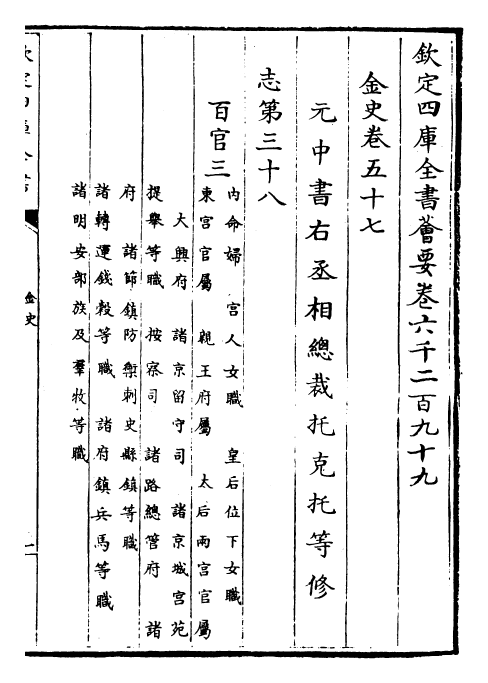 欽定四庫全書薈要卷六千二百九十九
金史卷五十七
元中書右丞相總裁托克托等修
志第三十八
百官三
內命婦 宮人女職 皇后位下女職
東宮官屬 親王府屬 太后兩宮官屬
大興府 諸京留守司 諸京城宮苑
提舉等職 按察司 諸路總管府 諸
府 諸節鎮防禦刺史縣鎮等職
諸轉運錢穀等職 諸府鎮兵馬等職
諸明安部族及羣牧等職
金史
一